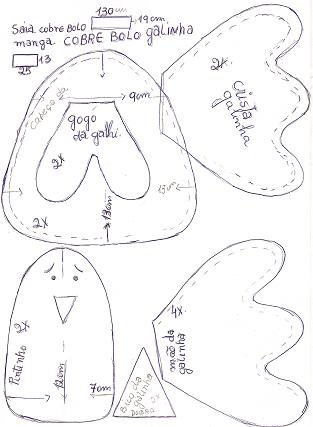 130cm
Saia cobre Bolo 19cm
manga COBRE BOLO galinha
13
25
Cabeça da
9cm
gogo
da galhi
2x
2x
13cm
13cm
2x
Crista
galinha
2x
Pintinho
12cm
7cm
Bico da
galinha
2x
4x
mão da
galinha